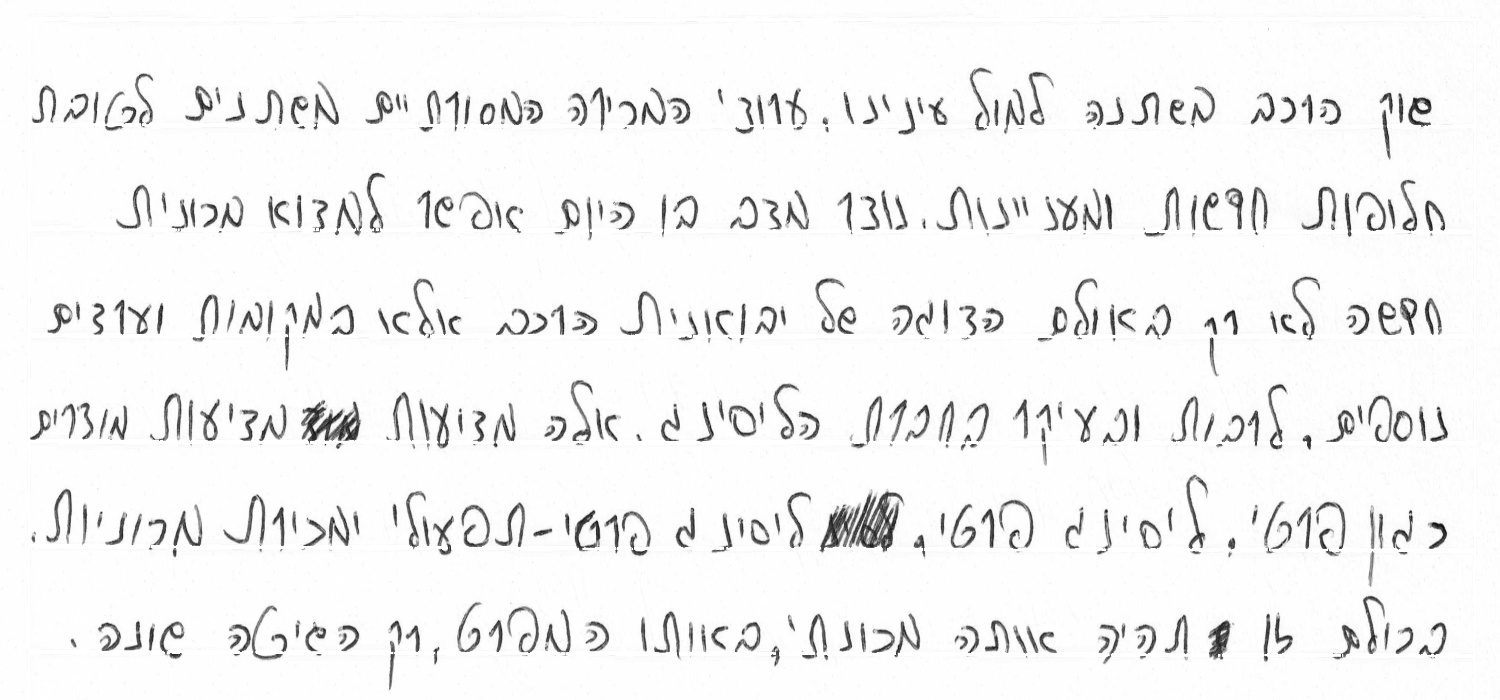 שוק הרכב משתנה למול עינינו. ערוצי המכירה המסורתיים משתנים לטובת
חלופות חדשות ומעניינות. נוצר מצב בו היום אפשר למצוא מכונית
חדשה לא רק באולם הצוגה של יבואנית הרכב אלא במקומות ועדצים
נוספים, לרבות ובעיקר בחברת הליסינג. אלה מצועות מציעות מוצרים
כגון פרטי, ליסינג פרטי, ליסינג פרטי-תפעולי ומכירת מכוניות.
בכולם זו תהיה אותה מכונת, באותו המפרט, רק הגיטה שונה.